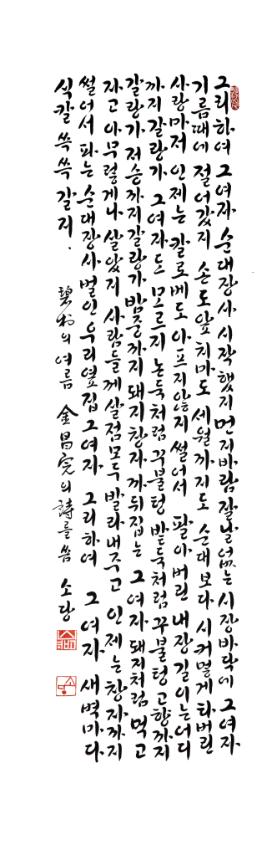 그리하여 그여자 순대장사 시작했지 먼지바람 잘날 없는 시장바닥에 그여자
기름때에 절어갔지 손도 앞치마도 세월까지도 순대보다 시커멓게 타버린
사랑마저 인제는 칼로베도 아프지않아 썰어서 팔아버린 내장길이는 어디
까지 갈랑가 그여자도 모르지 논둑처럼 꾸불텅 밭둑처럼 꾸불텅 고향까지
갈랑가 저승까지 갈랑가 밤꿈까지 돼지창자까 뒤집는 그여자 돼지처럼 먹고
자고 아무렇게나 살았지 사람들께 살점 모두 발라내주고 인제는 창자까지
썰어서 파는 순대장사 벌인 우리옆집 그여자 그리하여 그여자 새벽마다
식칼 쓱쓱 갈지.
의 여름 金昌完의 詩를 씀 소당